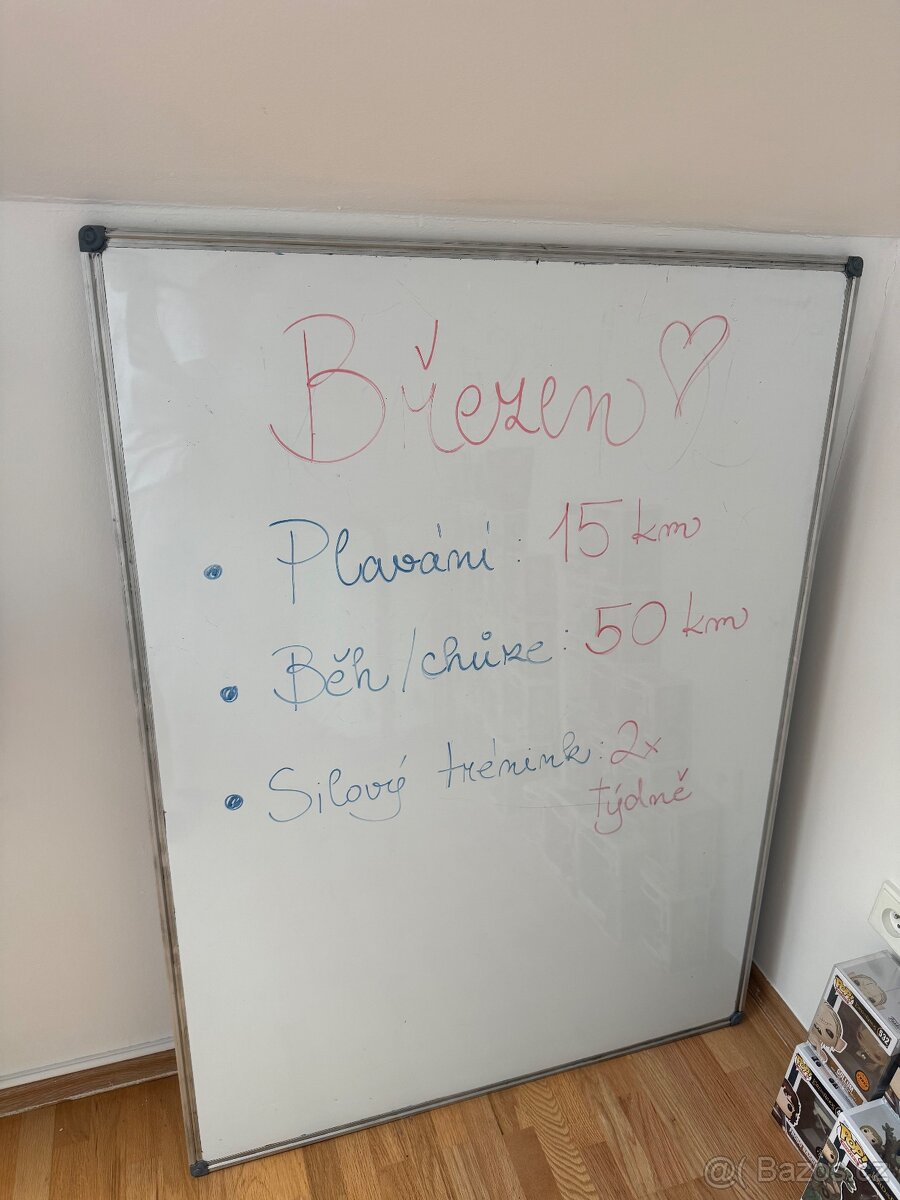 Březen
Plavání: 15 km
Běh/chůze: 50 km
Silový trénink: 2x
týdně
POP!
POP!
POP!
@( Bazos.cz